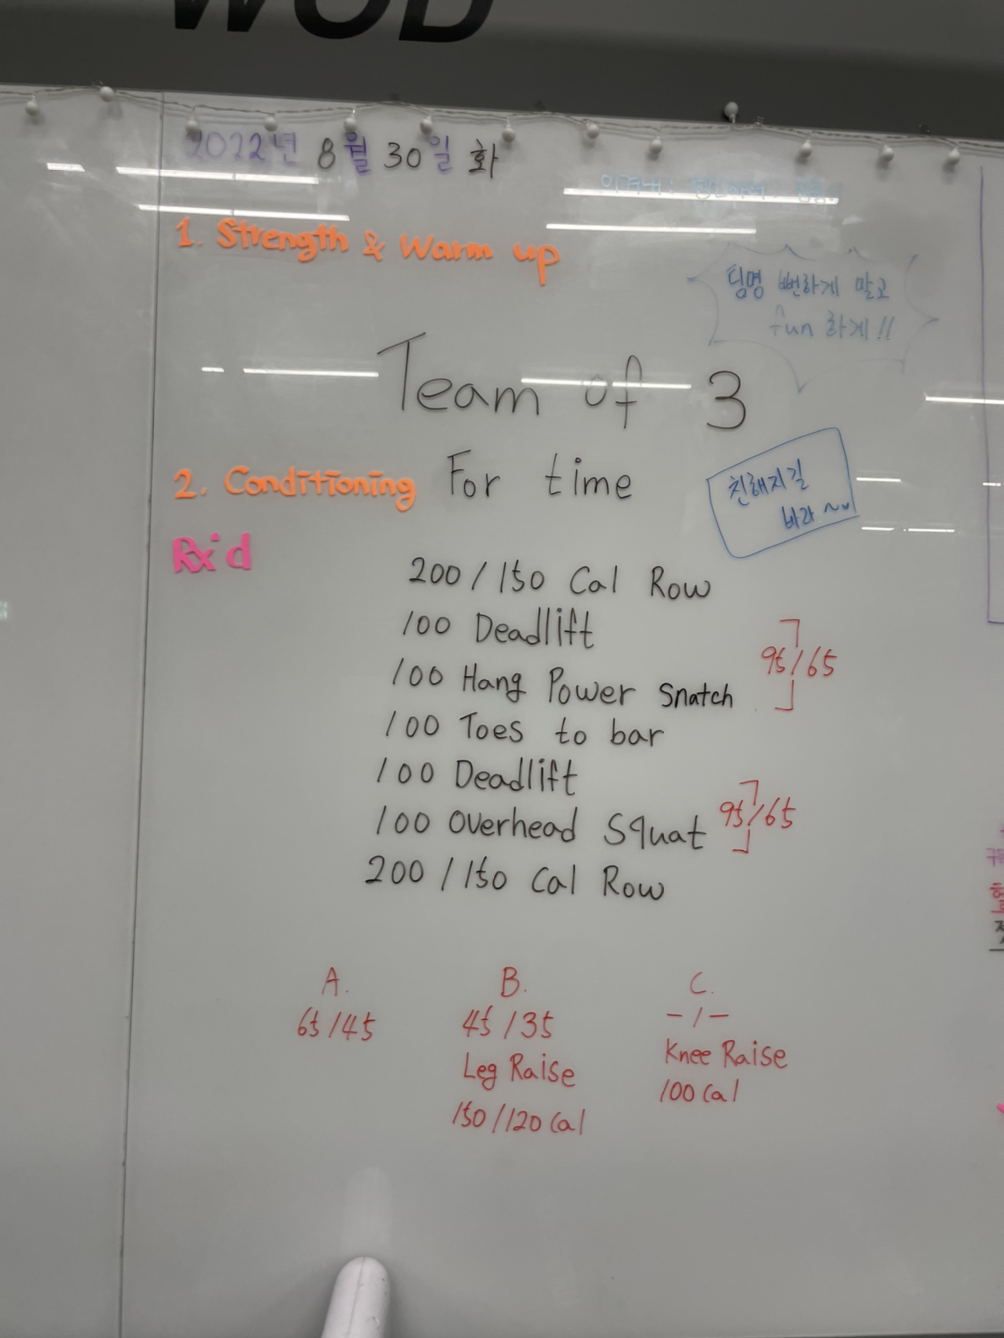 WOD
2022년 8월 30일 화
1. Strength & Warm up
팀명 뻔하게 말고
fun 하게!!
Team of 3
2. Conditioning For time
친해지길
바라 ~
Rx'd
200 / 150 Cal Row
100 Deadlift
100 Hang Power Snatch
95/65
100 Toes to bar
100 Deadlift
100 Overhead Squat
95/65
200 / 150 Cal Row
A. B. C.
65/45 45/35 -/-
Leg Raise Knee Raise
150/120 Cal 100 Cal